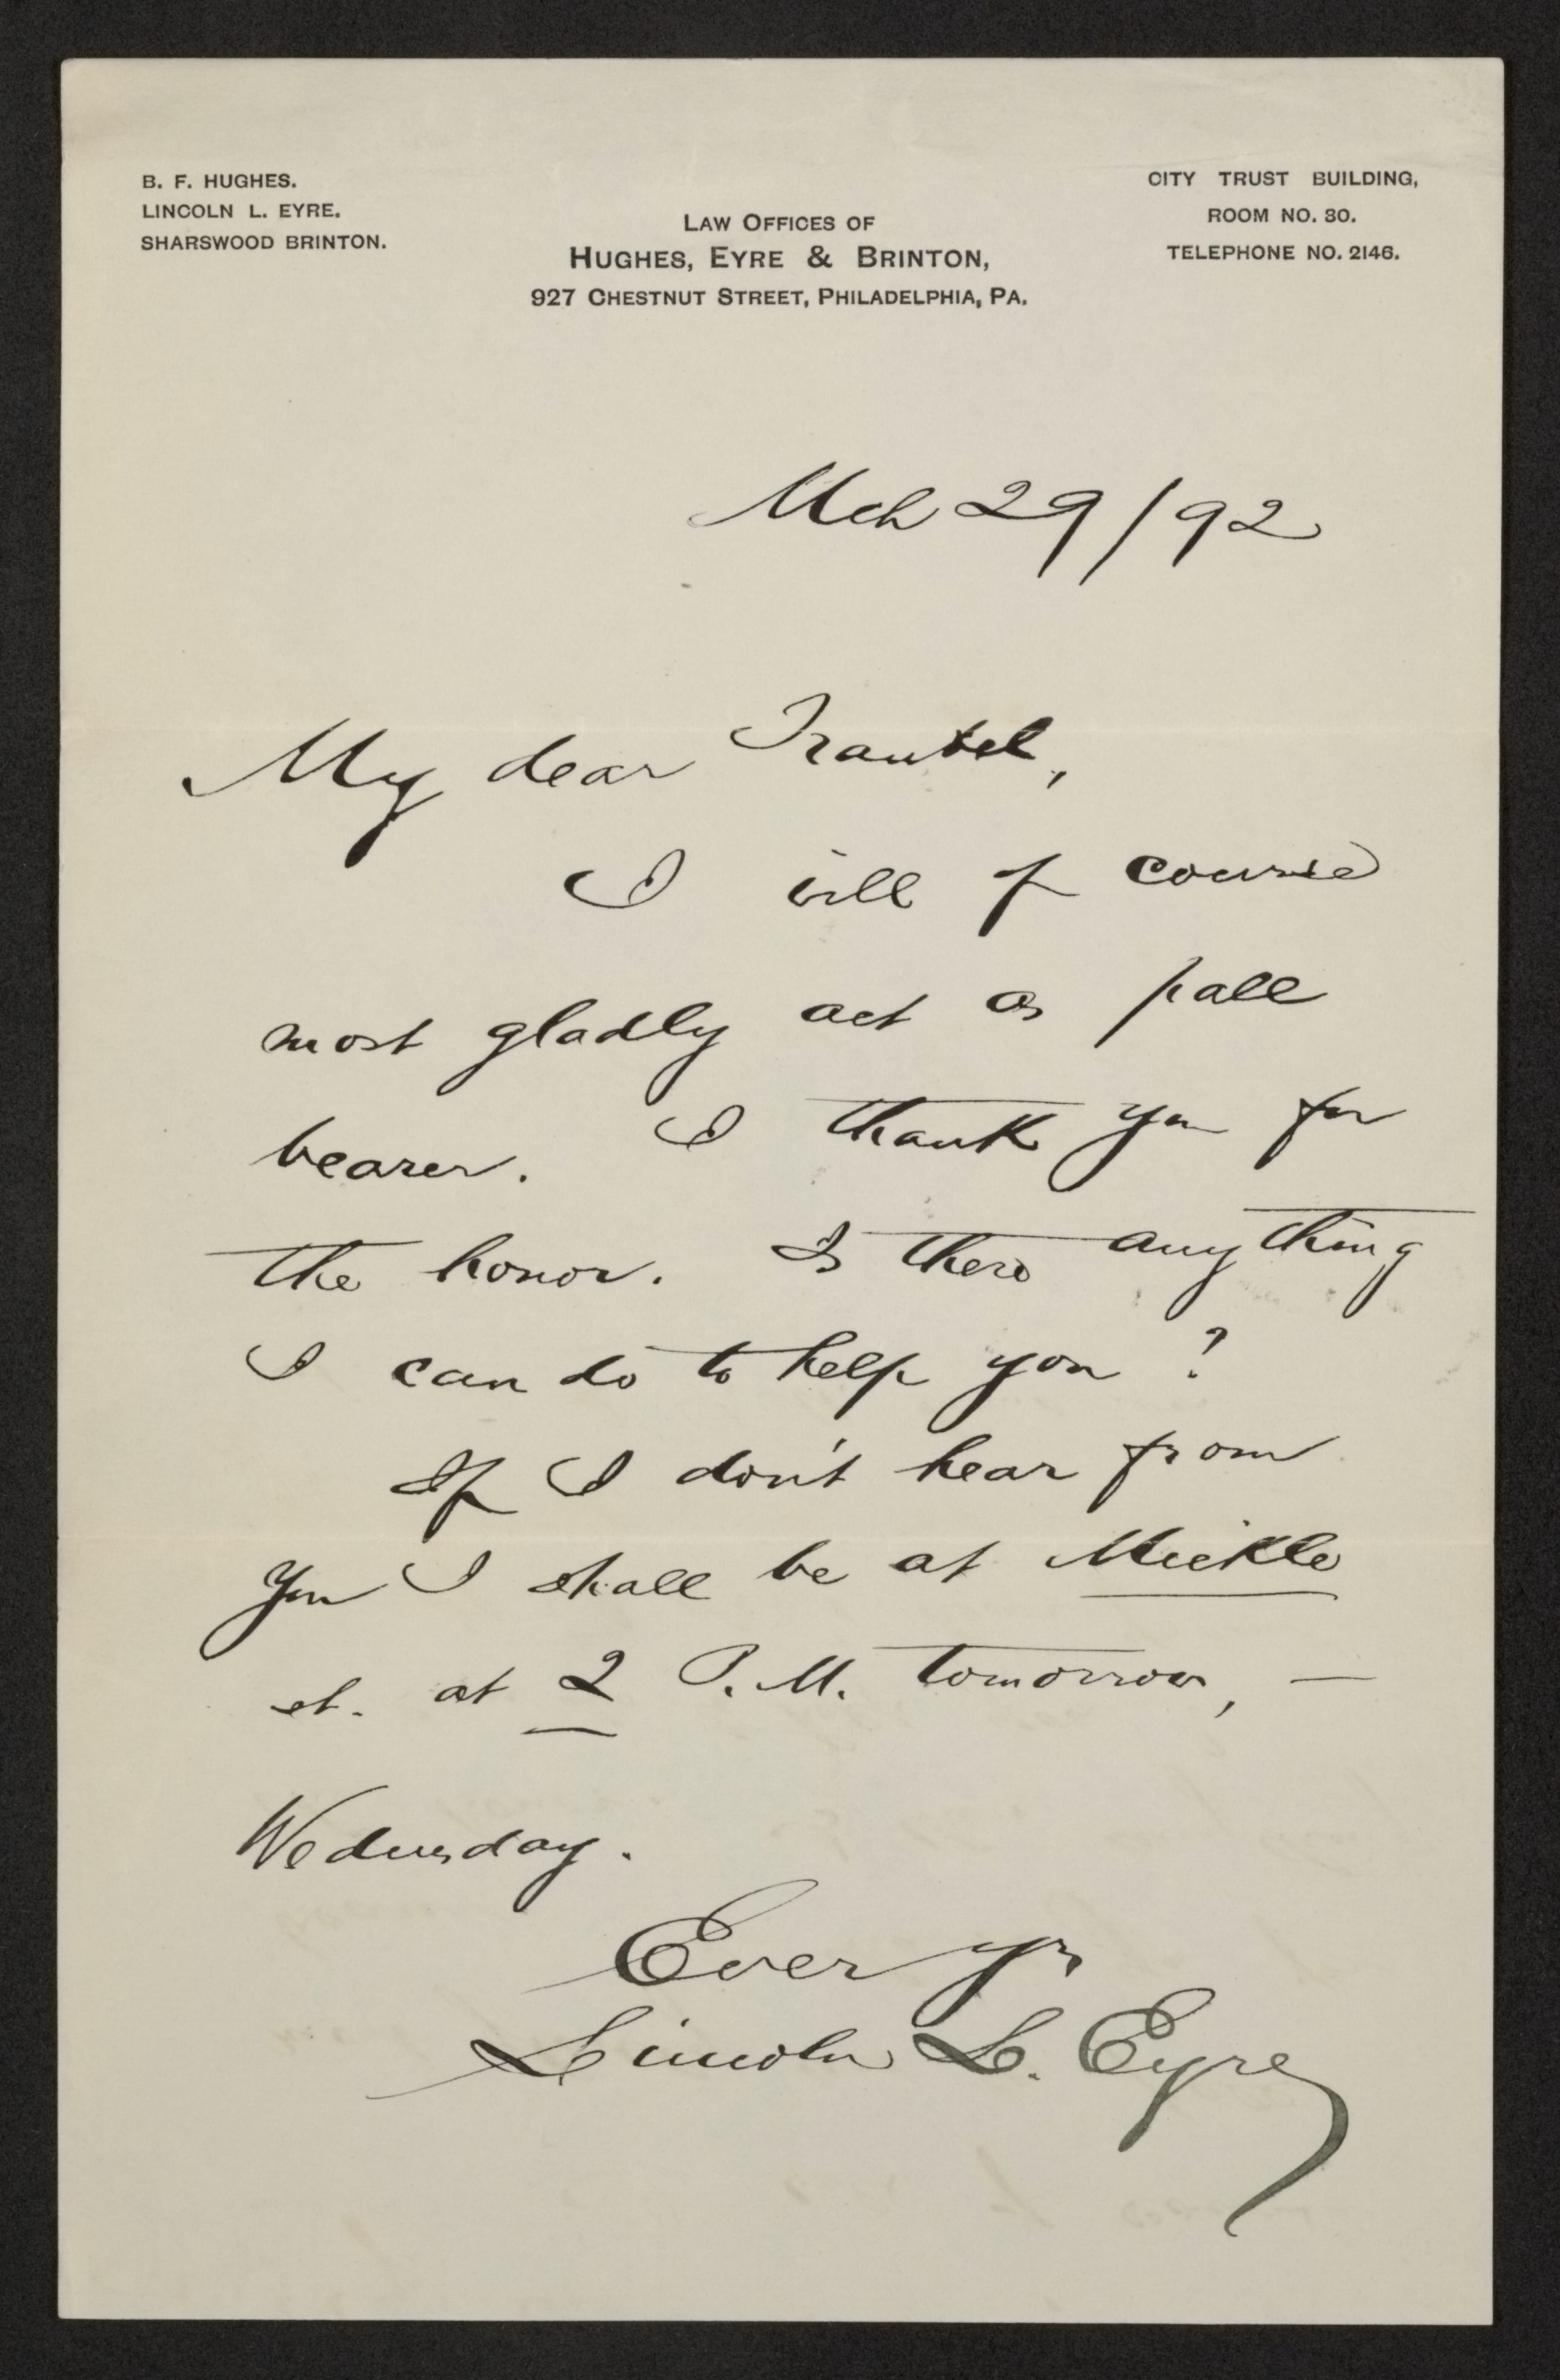 B. F. HUGHES.
LINCOLN L. EYRE.
SHARSWOOD BRINTON.
LAW OFFICES OF
HUGHES, EYRE & BRINTON,
927 CHESTNUT STREET, PHILADELPHIA, PA.
CITY TRUST BUILDING,
ROOM NO. 30.
TELEPHONE NO. 2146.
Mch 29/92
My dear Traubel,
I will of course
most gladly act as pall
bearer. I thank you for
the honor. Is there anything
I can do to help you?
If I don't hear from
you I shall be at Mickle
st. at 2 P.M. tomorrow, —
Wednesday.
Ever yr
Lincoln L. Eyre